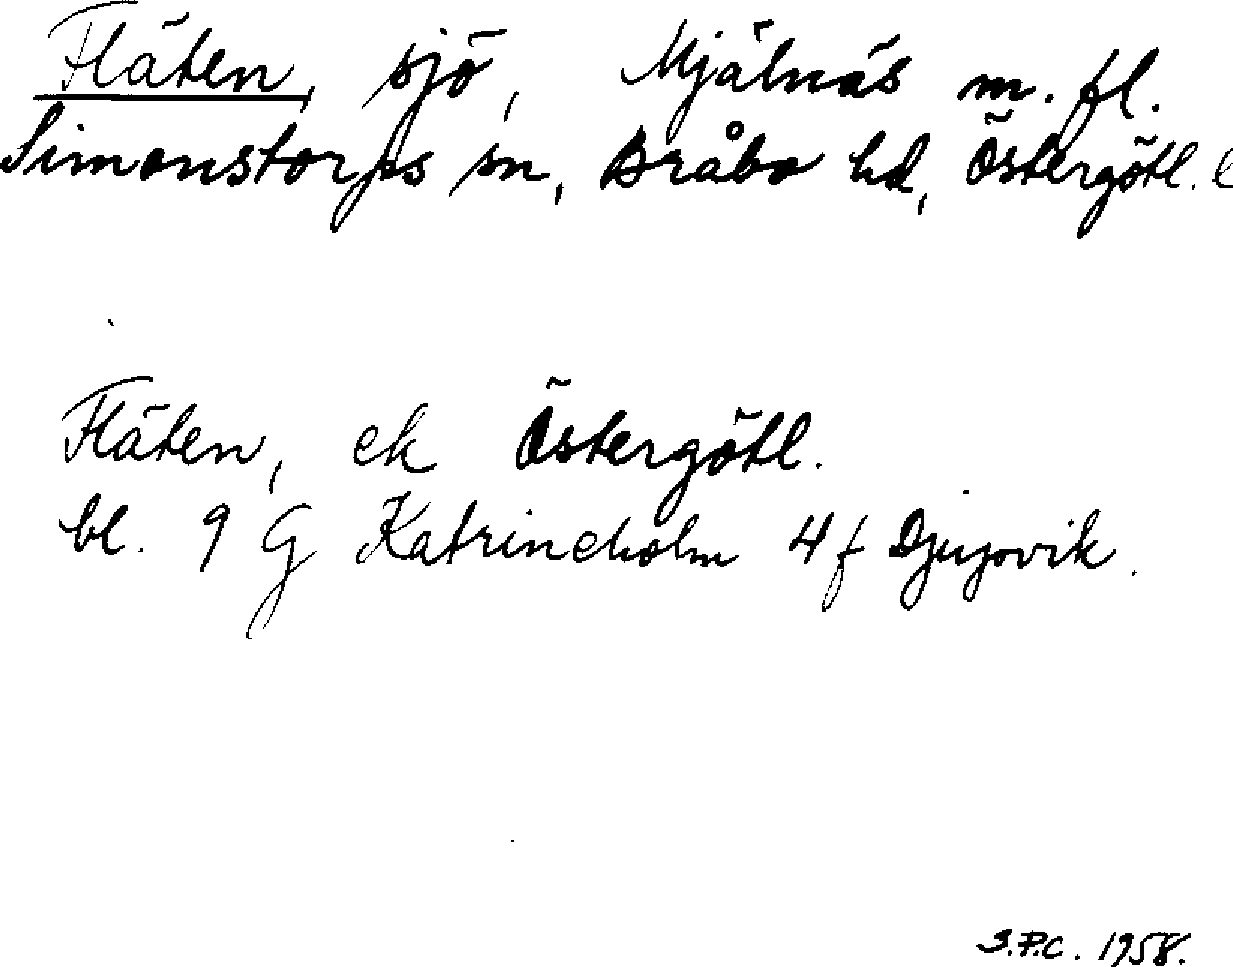 Fläten, sjö, Mjälnäs m. fl.
Simonstorps sn, Bråbo hd, Östergötl. l
Fläten, ek Östergötl.
bl. 9 G Katrineholm 4f Djupvik.
S.P.C. 1958.